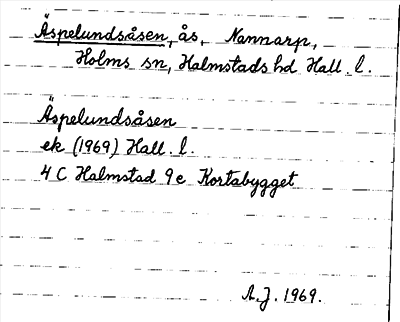 Äspelundsåsen, ås, Nannarp,
Holms sn, Halmstads hd Hall. l.
Äspelundsåsen
ek (1969) Hall. l.
4 C Halmstad 9e Kortabygget
A.J. 1969.